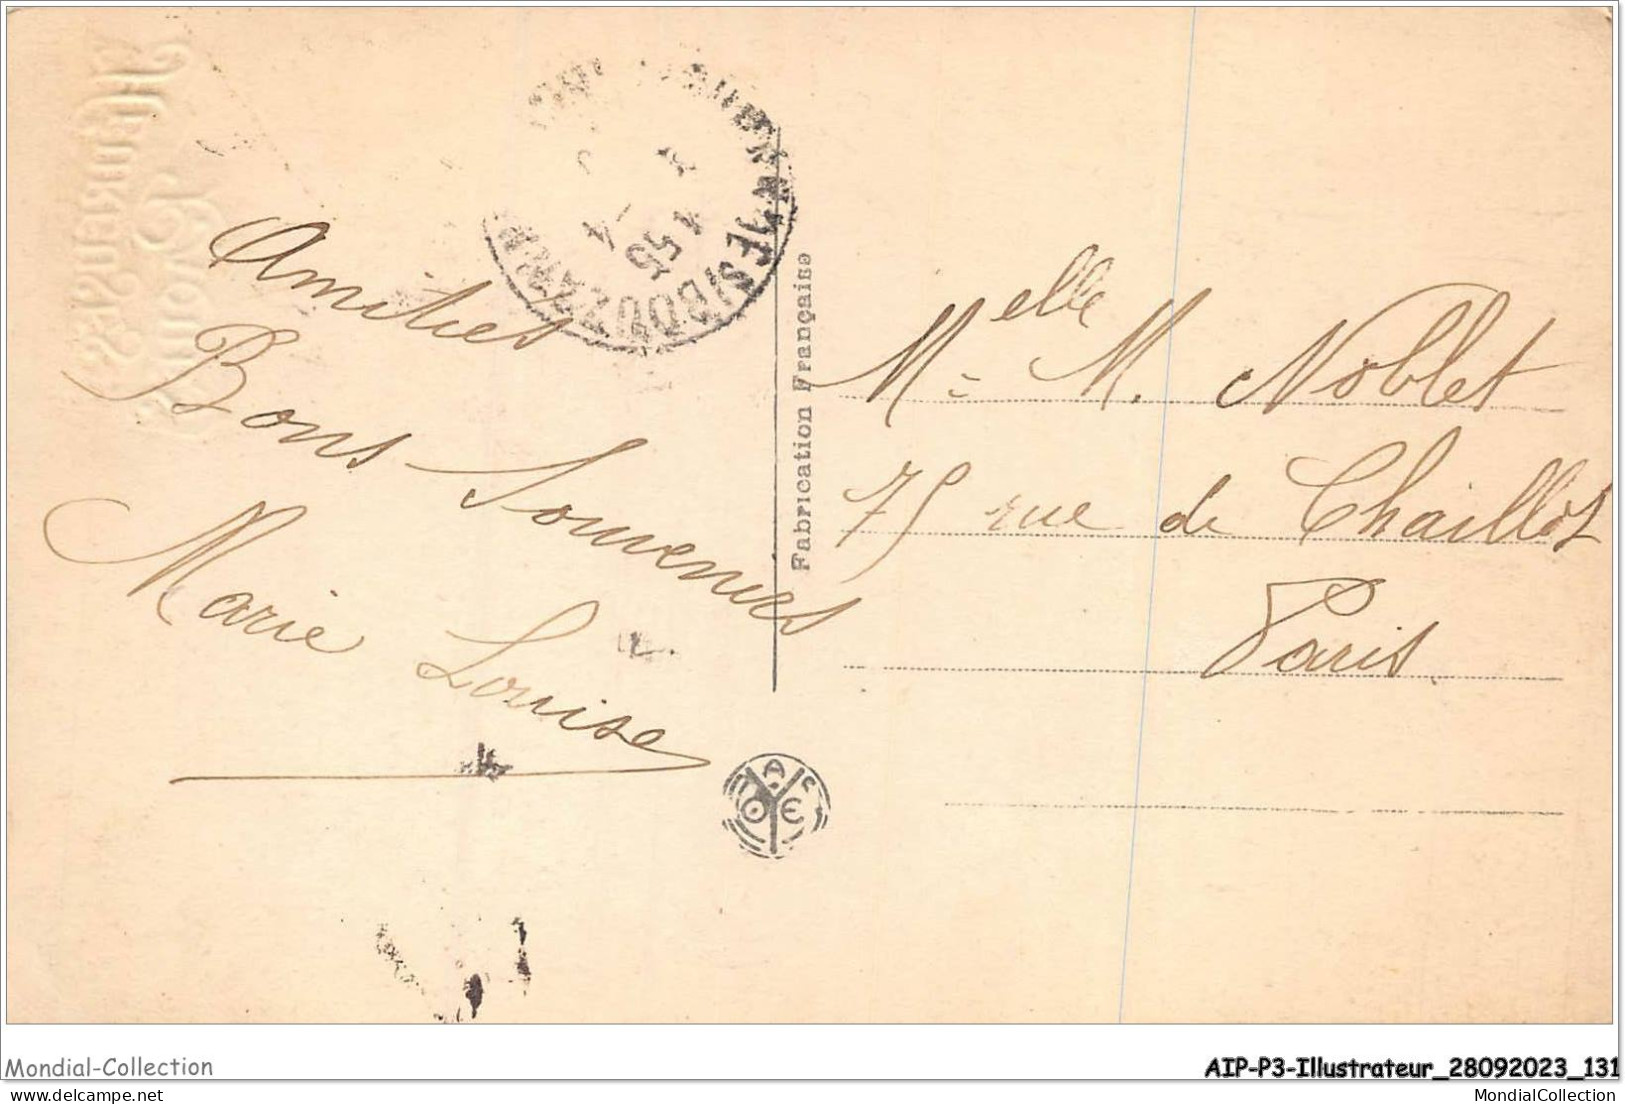 Amitiés
Bons Souvenirs
Marie Louise
Fabrication Française
Melle M. Noblet
75 rue de Chaillot
Paris
Mondial-Collection
AIP-P3-Illustrateur_28092023_131
MondialCollection